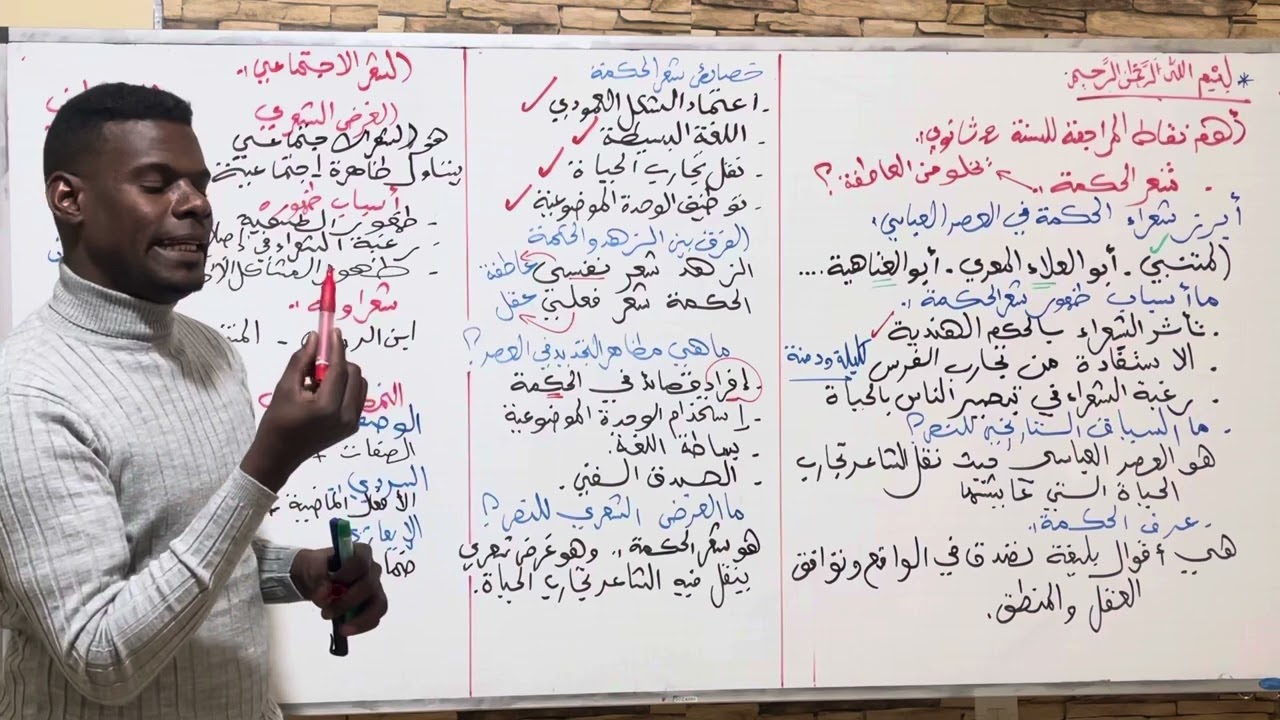 * بسم الله الرحمن الرحيم
أهم نقاط المراجعة للسنة 2 ثانوي:
. شعر الحكمة: تخلو من العاطفة؟
أبرز شعراء الحكمة في العصر العباسي:
المتنبي . أبو العلاء المعري . أبو العتاهية ....
ما أسباب ظهور شعر الحكمة:
. تأثر الشعراء بالحكم الهندية
. الاستفادة من تجارب الفرس كليلة ودمنة
. رغبة الشعراء في تبصير الناس بالحياة
. ما السياق التاريخي للنص؟
هو العصر العباسي حيث نقل الشاعر تجارب
الحياة التي عايشها
. عرف الحكمة:
هي أقوال بليغة تصدق في الواقع وتوافق
العقل والمنطق.
خصائص شعر الحكمة
. اعتماد الشكل العمودي
. اللغة البسيطة
. نقل تجارب الحياة
. توظيف الوحدة الموضوعية
الفرق بين الزهد والحكمة
الزهد شعر نفسي عاطفة
الحكمة شعر فعلي عقل
ما هي مظاهر التجديد في العصر؟
. إفراد قصائد في الحكمة
. استخدام الوحدة الموضوعية
. بساطة اللغة.
. الصدق الفني.
ما الغرض الشعري للنص؟
هو شعر الحكمة: وهو غرض شعري
ينقل فيه الشاعر تجارب الحياة.
الشعر الاجتماعي:
الغرض الشعري
هو الشعر الاجتماعي
يتناول ظاهرة اجتماعية
أسباب ظهوره
- ظهور الطبقية
- رغبة الشعراء في
- ظهور المشاكل
شعراؤه:
ابن - 
الصفات +
السردي
الأفعال الماضية +